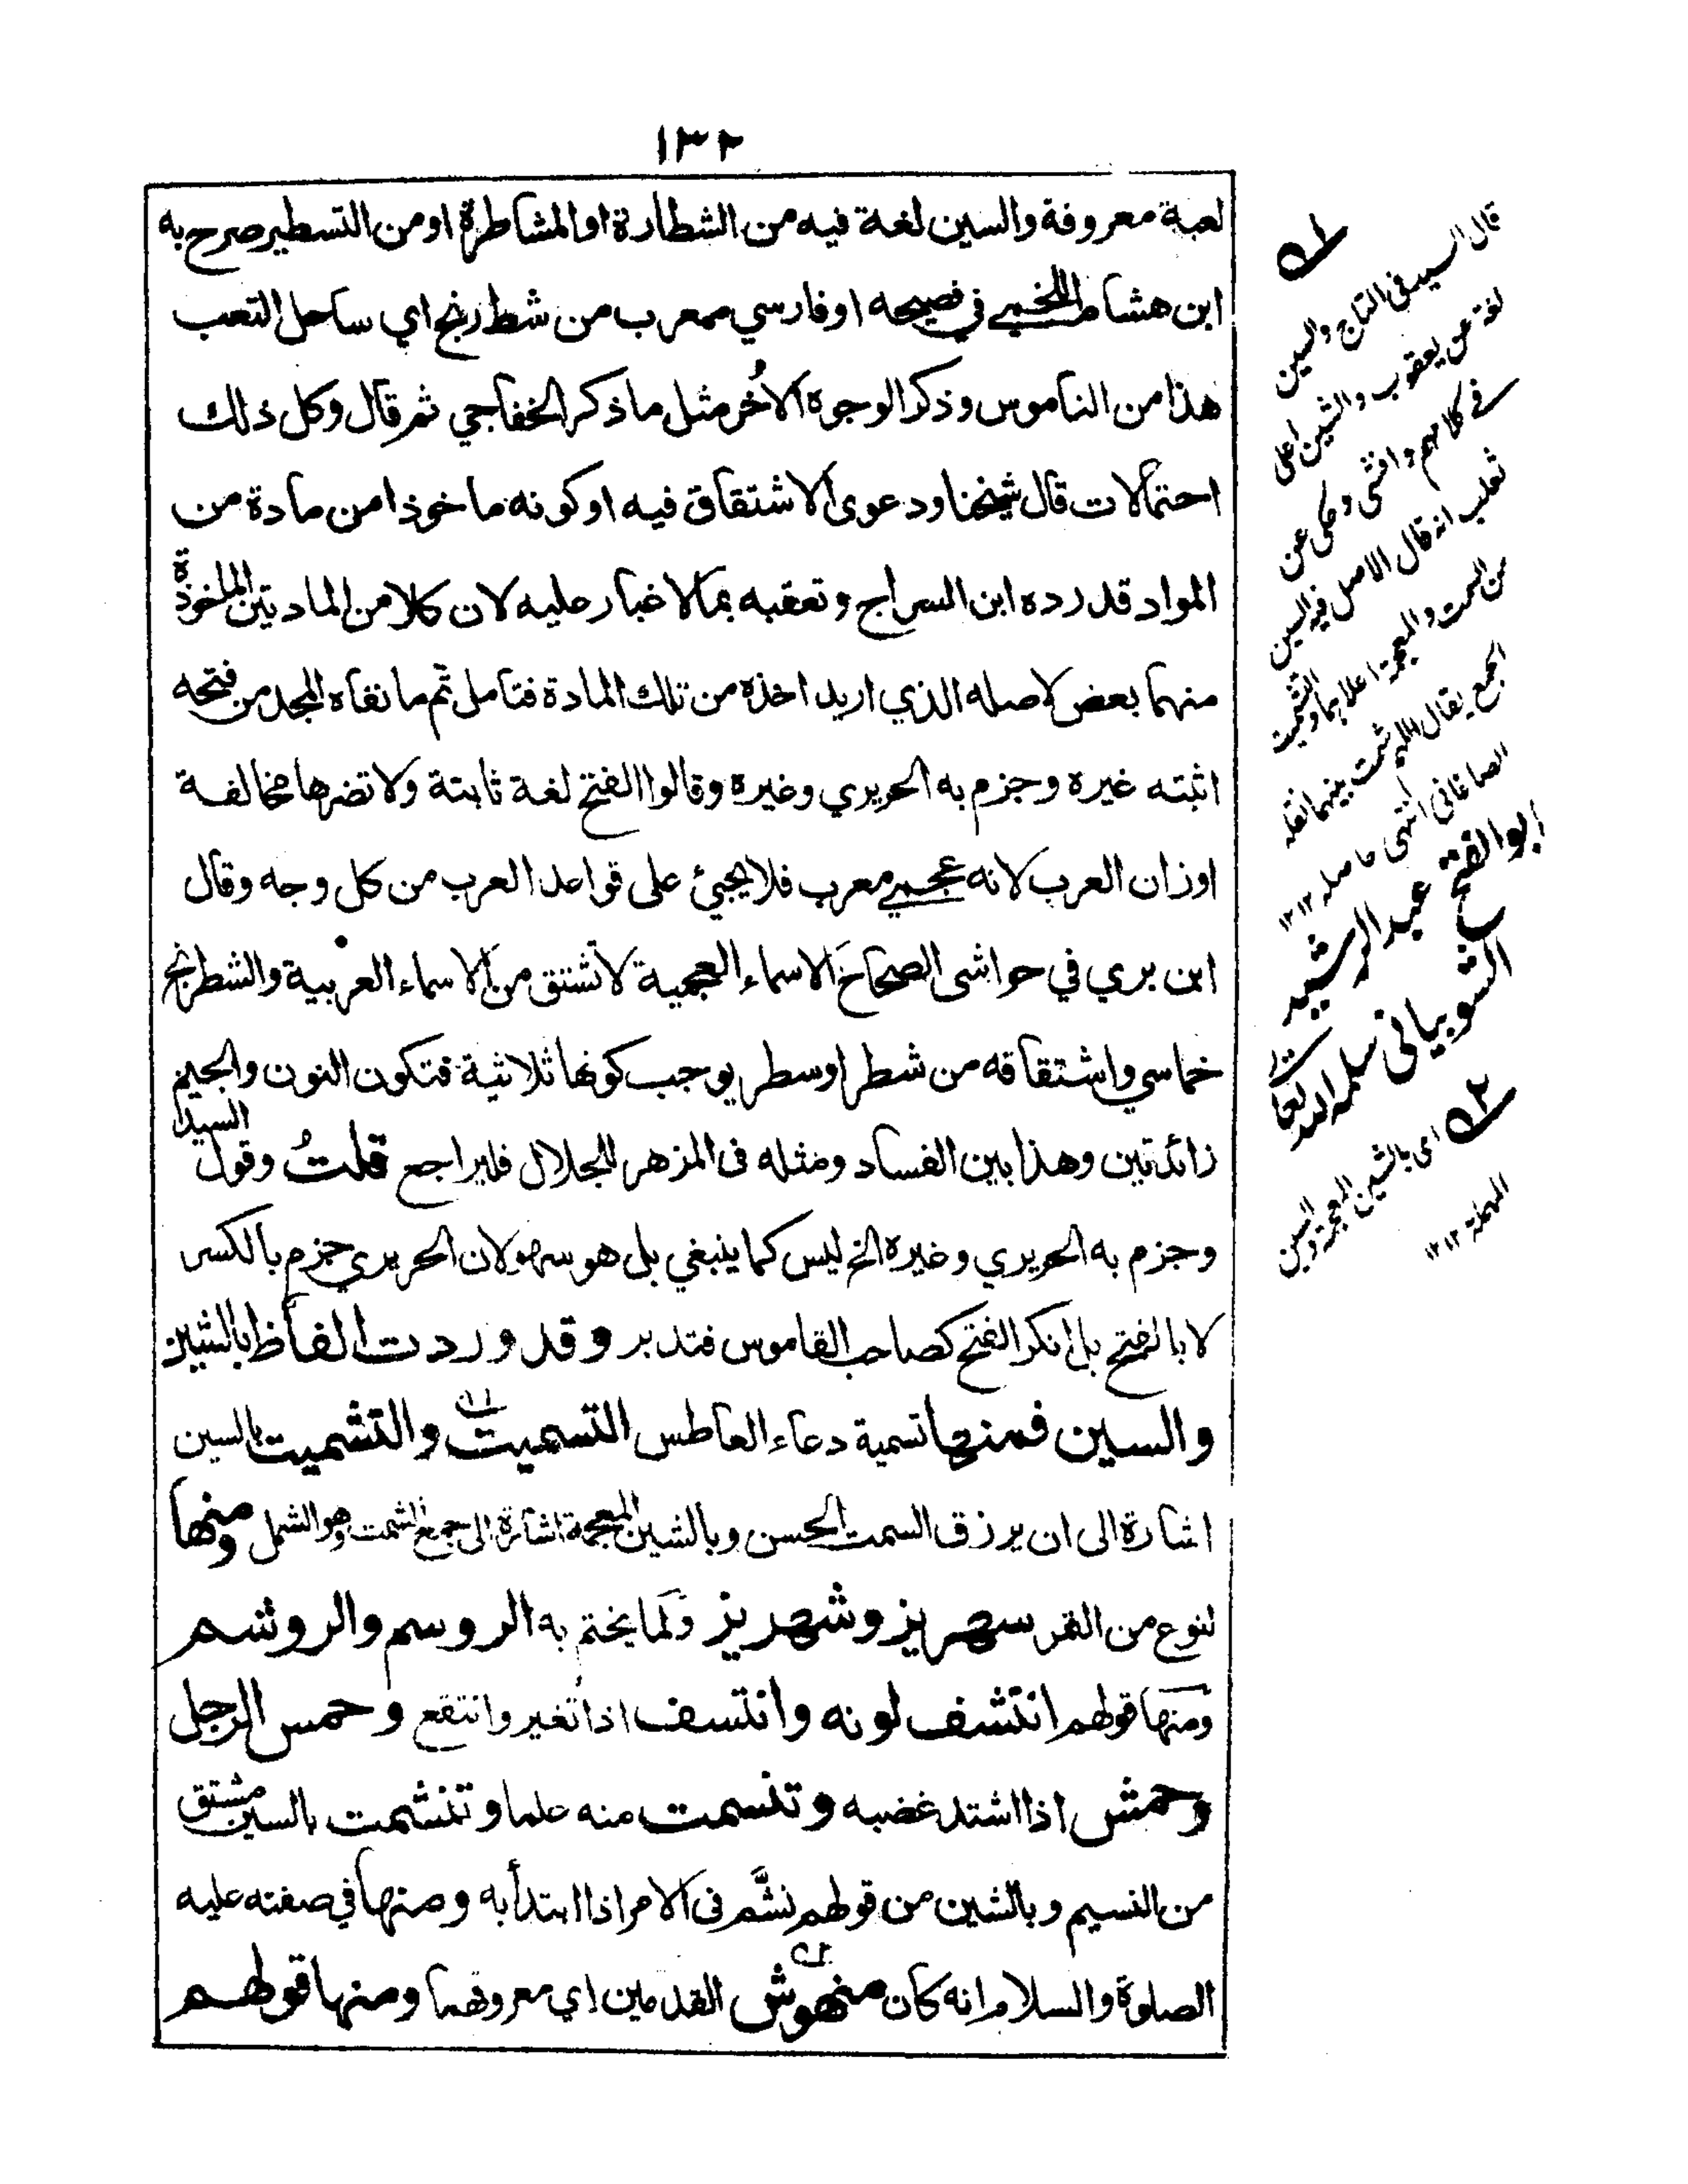 ١٣٢
لعبة معروفة والسين لغة فيه من الشطارة او المشاطرة او من التسطير صرح به
ابن هشام اللخمي في فصيحه او فارسي معرب من شط رنج اي ساحل التعب
هذا من الناموس وذكر الوجوه الاُخر مثل ما ذكر الخفاجي ثم قال وكل ذلك
احتمالات قال شيخنا ودعوى الاشتقاق فيه او كونه ماخوذا من مادة من
المواد قد رده ابن السراج وتعقبه بما لا غبار عليه لان كلا من المادتين الماخوذة
منهما بعض لاصله الذي اريد اخذه من تلك المادة فتامل ثم ما نفاه المجد من فتحه
اثبته غيره وجزم به الحريري وغيره وقالوا الفتح لغة ثابتة ولا تضرها مخالفة
اوزان العرب لانه عجمي معرب فلا يجيئ على قواعد العرب من كل وجه وقال
ابن بري في حواشى الصحاح الاسماء العجمية لا تشتق من الاسماء العربية والشطرنج
خماسي واشتقاقه من شطر او سطر يوجب كونها ثلاثية فتكون النون والجيم
زائدتين وهذا بين الفساد ومثله فى المزهر للجلال فليراجع قلتُ وقول السيد
وجزم به الحريري وغيره الخ ليس كما ينبغي بل هو سهو لان الحريري جزم بالكسر
لا بالفتح بل انكر الفتح كصاحب القاموس فتدبر وقد وردت الفاظ بالشين
والسين فمنها تسمية دعاء العاطس التسميت والتشميت بالسين
اشارة الى ان يرزق السمت الحسن وبالشين المعجمة اشارة الى جمع الشمت وهو الشمل ومنها
لنوع من التمر سهريز وشهريز ولما يختم به الروسم والروشم
ومنها قولهم انتشف لونه وانتسف اذا تغير وانتقع وحمس الرجل
وحمش اذا اشتد غضبه وتنسمت منه علما وتنشمت بالسين مشتق
من النسيم وبالشين من قولهم نشَّم فى الامر اذا ابتدأ به ومنها في صفته عليه
الصلوة والسلام انه كان منهوش القدمين اي معروقهما ومنها قولهم
١
قال السيد فى التاج والسين
لغة عن يعقوب والشين اعلى
فى كلامهم وافشى وحكى عن
ثعلب انه قال الاصل فيه السين
من السمت والمعجمة اعلاهما والتشميت
الجمع يقال اللهم شمت بينهما نقله
الصاغانى انتهى حاصله ١٢ ١٢
ابو الفتح عبد الرشيد
الشوپيانى سلمه الله تعا
٢
اى بالشين المعجمة والسين
المهملة ١٢ ١٢